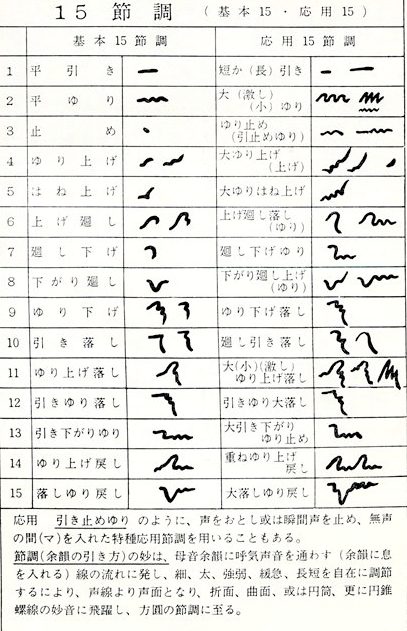 15節調 (基本15・応用15)
基本15節調 応用15節調
1 平引き 短か(長)引き
2 平ゆり 大(激し)
(小)ゆり
3 止め ゆり止め
(引止めゆり)
4 ゆり上げ 大ゆり上げ
(上げ)
5 はね上げ 大ゆりはね上げ
6 上げ廻し 上げ廻し落し
(ゆり)
7 廻し下げ 廻し下げゆり
8 下がり廻し 下がり廻し上げ
(ゆり)
9 ゆり下げ ゆり下げ落し
10 引き落し 廻し引き落し
11 ゆり上げ落し 大(小)(激し)
ゆり上げ落し
12 引きゆり落し 引きゆり大落し
13 引き下がりゆり 大引き下げ
ゆり止め
14 ゆり上げ戻し 重ねゆり上げ
戻し
15 落しゆり戻し 大落しゆり戻し
応用 引き止めゆり のように、声をおとし或は瞬間声を止め、無声
の間(マ)を入れた特種応用節調を用いることもある。
節調(余韻の引き方)の妙は、母音余韻に呼気声音を通わす(余韻に息
を入れる)線の流れに発し、細、太、強弱、緩急、長短を自在に調節
するにより、声線より声面となり、折面、曲面、或は円筒、更に円錐
螺線の妙音に飛躍し、方圓の節調に至る。